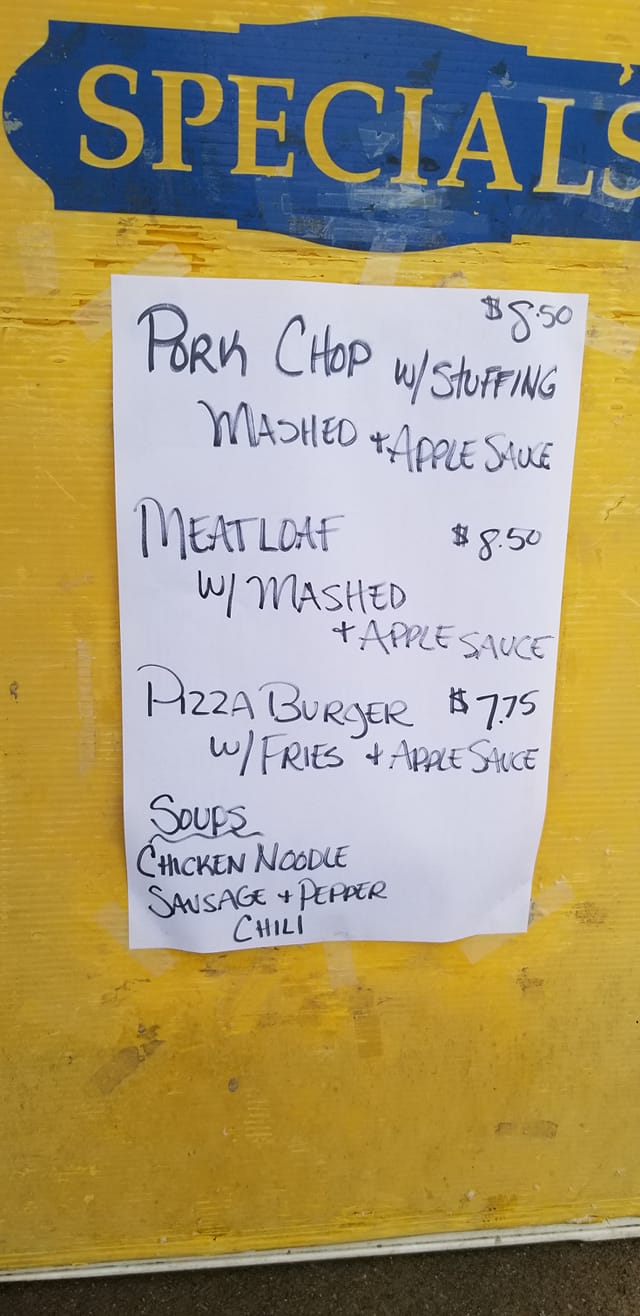 SPECIAL'S
$8.50
PORK CHOP W/ STUFFING
MASHED + APPLE SAUCE
MEATLOAF $8.50
W/ MASHED
+ APPLE SAUCE
PIZZA BURGER $7.75
W/ FRIES + APPLE SAUCE
SOUPS
CHICKEN NOODLE
SAUSAGE + PEPPER
CHILI